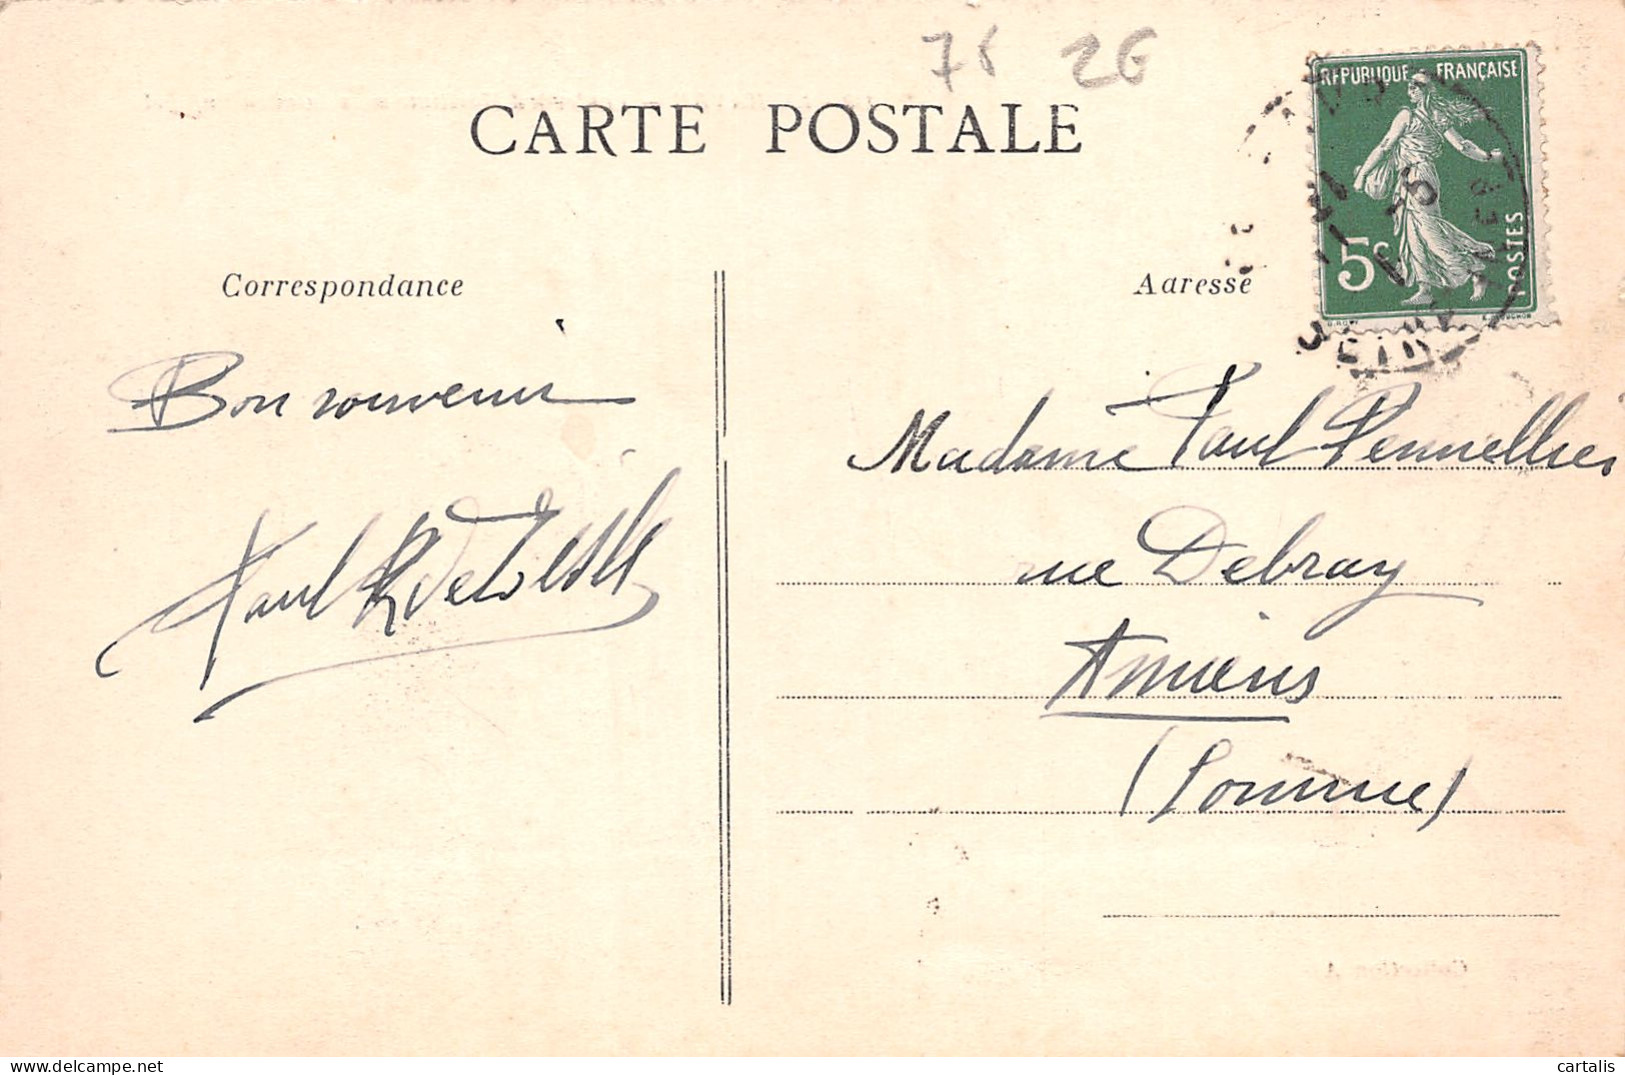 75 2G
CARTE POSTALE
REPUBLIQUE FRANÇAISE
5c
POSTES
Correspondance
Adresse
Bon souvenir
Paul
Madame Paul Pennellier
rue Debray
Amiens
(Somme)
cartalis